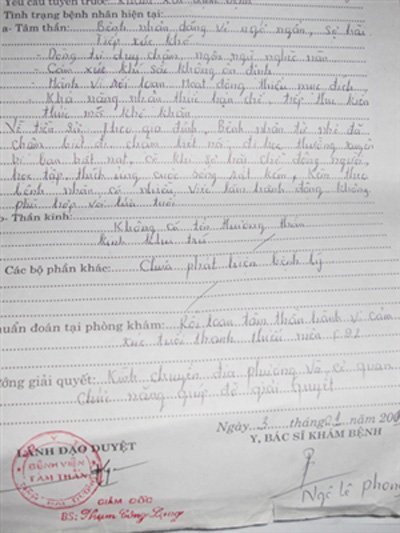 Yêu cầu tuyến trước:
Tình trạng bệnh nhân hiện tại:
a- Tâm thần: Bệnh nhân đáng vẻ ngờ ngạn, sợ hãi
tiếp xúc khó
- Dòng tư duy chậm, ngôn ngữ nghèo nàn
- Cảm xúc khí sắc không ổn định
- Hành vi rối loạn. Hoạt động thiếu mục đích
- Khả năng nhận thức hạn chế, tiếp thu kiến
thức mới khó khăn
Về tiền sử: Theo gia đình, Bệnh nhân từ nhỏ đã
chậm đi chậm biết nói, đi học thường xuyên
bị bạn bắt nạt, có khi sợ hãi chỗ đông người,
học tập, thích ứng cuộc sống rất kém, Kèm theo
bệnh nhân có nhiều việc làm hành động không
phù hợp với lứa tuổi
b- Thần kinh:
Không có tổn thương thần
kinh khu trú
Các bộ phận khác: Chưa phát hiện bệnh lý
uẩn đoán tại phòng khám: Rối loạn tâm thần hành vi cảm
xúc tuổi thanh thiếu niên F92
ướng giải quyết: Kính chuyển địa phương và cơ quan
chức năng giúp đỡ giải quyết
Ngày 3 tháng 1 năm 200
LÃNH ĐẠO DUYỆT
Y, BÁC SĨ KHÁM BỆNH
BỆNH VIỆN
TÂM THẦN
GIÁM ĐỐC
BS: Phạm Công
Ngô Lê Phong